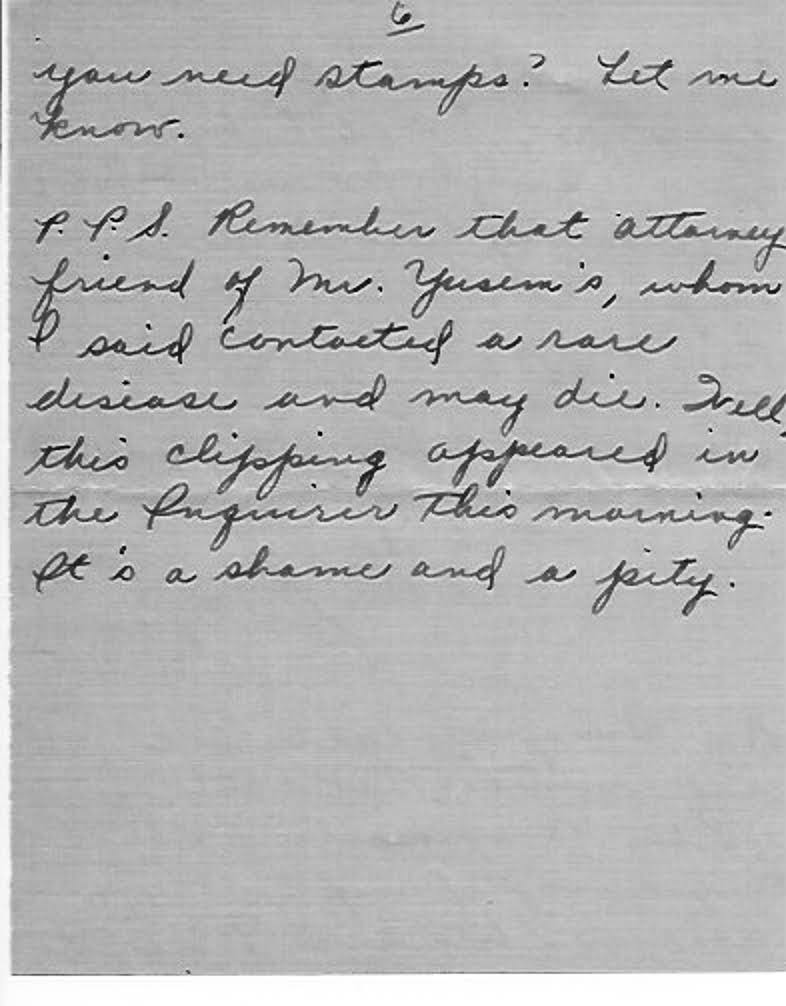 6
you need stamps? Let me
know.
P. P. S. Remember that attorney
friend of Mr. Yusem's, whom
I said contacted a rare
disease and may die. Well,
this clipping appeared in
the Inquirer this morning.
It's a shame and a pity.